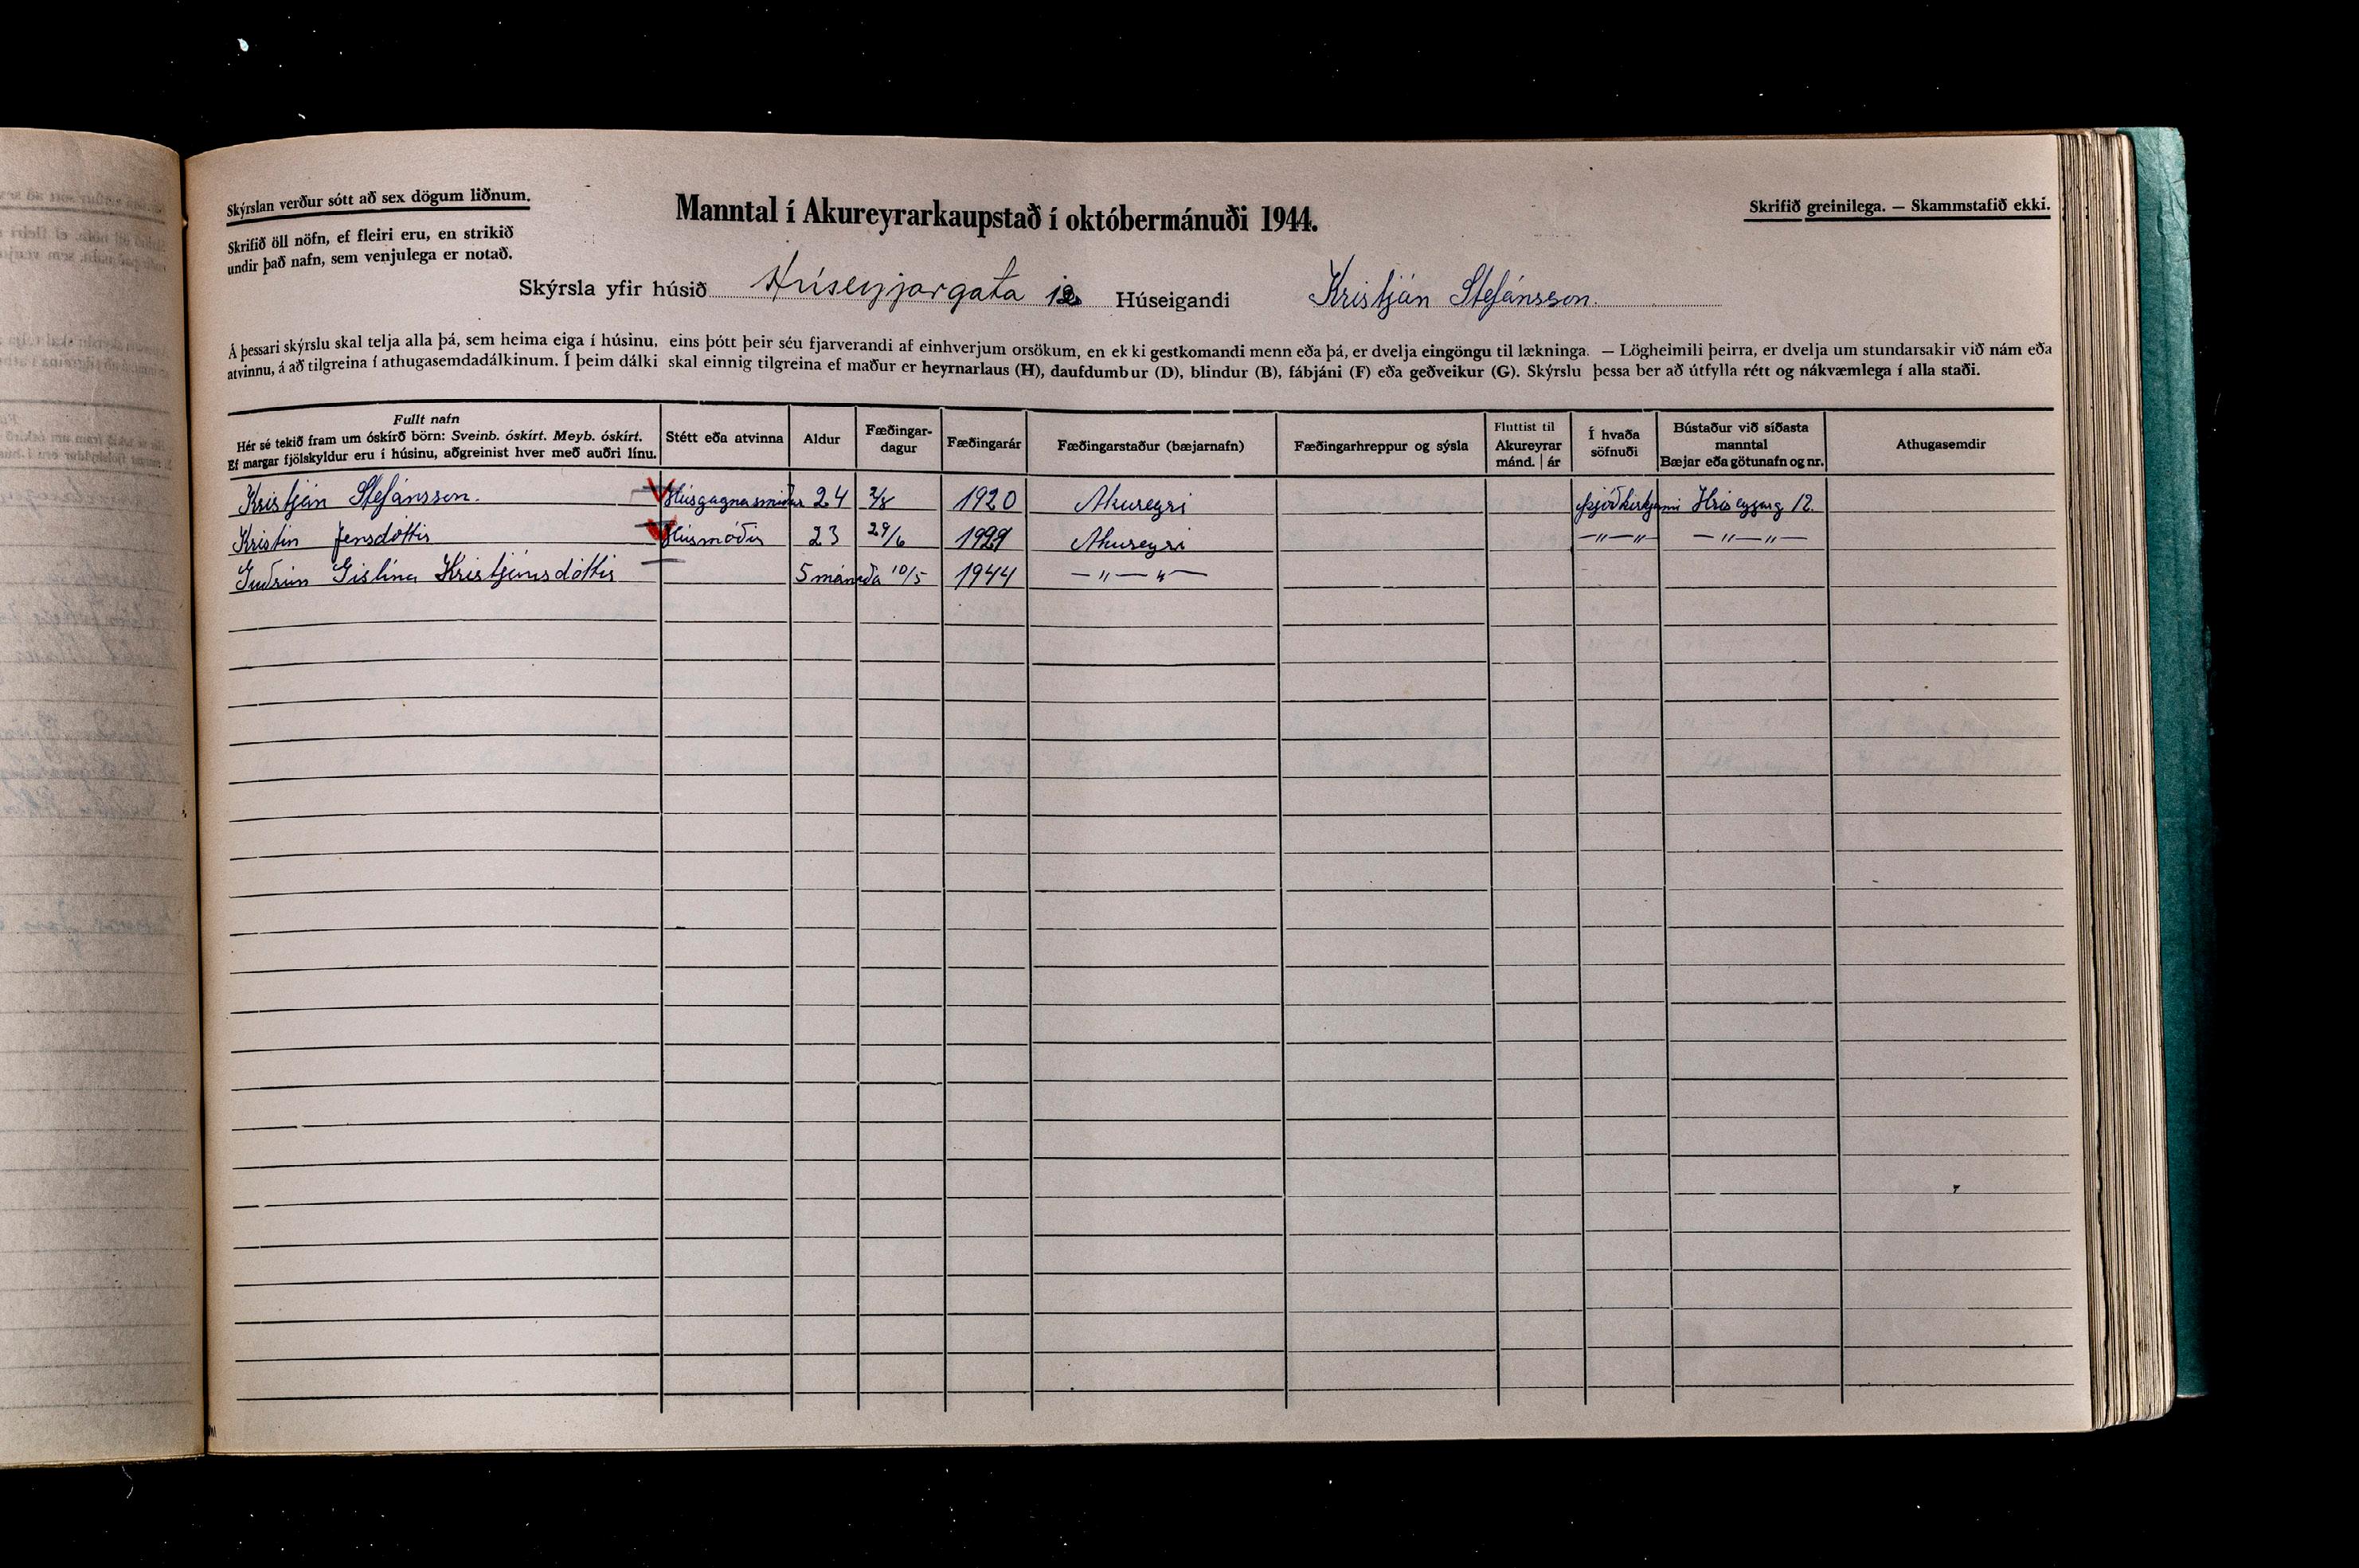 Skýrslan verður sótt að sex dögum liðnum.
Skrifið öll nöfn, ef fleiri eru, en strikið
undir það nafn, sem venjulega er notað.
Manntal í Akureyrarkaupstað í októbermánuði 1944.
Skrifið greinilega. — Skammstafið ekki.
Skýrsla yfir húsið Hríseyjargata 12 Húseigandi Kristján Stefánsson.
Á þessari skýrslu skal telja alla þá, sem heima eiga í húsinu, eins þótt þeir séu fjarverandi af einhverjum orsökum, en ekki gestkomandi menn eða þá, er dvelja eingöngu til lækninga. — Lögheimili þeirra, er dvelja um stundarsakir við nám eða
atvinnu, á að tilgreina í athugasemdadálkinum. Í þeim dálki skal einnig tilgreina ef maður er heyrnarlaus (H), daufdumbur (D), blindur (B), fábjáni (F) eða geðveikur (G). Skýrslu þessa ber að útfylla rétt og nákvæmlega í alla staði.
Fullt nafn
Hér sé tekið fram um óskírð börn: Sveinb. óskírt. Meyb. óskírt.
Ef margar fjölskyldur eru í húsinu, aðgreinist hver með auðri línu.
Stétt eða atvinna
Aldur
Fæðingar-
dagur
Fæðingarár
Fæðingarstaður (bæjarnafn)
Fæðingarhreppur og sýsla
Fluttist til
Akureyrar
mánd. | ár
Í hvaða
söfnuði
Bústaður við síðasta
manntal
Bæjar eða götunafn og nr.
Athugasemdir
Kristján Stefánsson. Húsgagnasmiður 24 2/8 1920 Akureyri Þjóðkirkjunni Hríseyjarg 12.
Kristín Jensdóttir Húsmóðir 23 29/6 Akureyri —"—"— —"—"—
Guðrún Gíslína Kristjánsdóttir 5 mánaða 10/5 1944 —"—"—